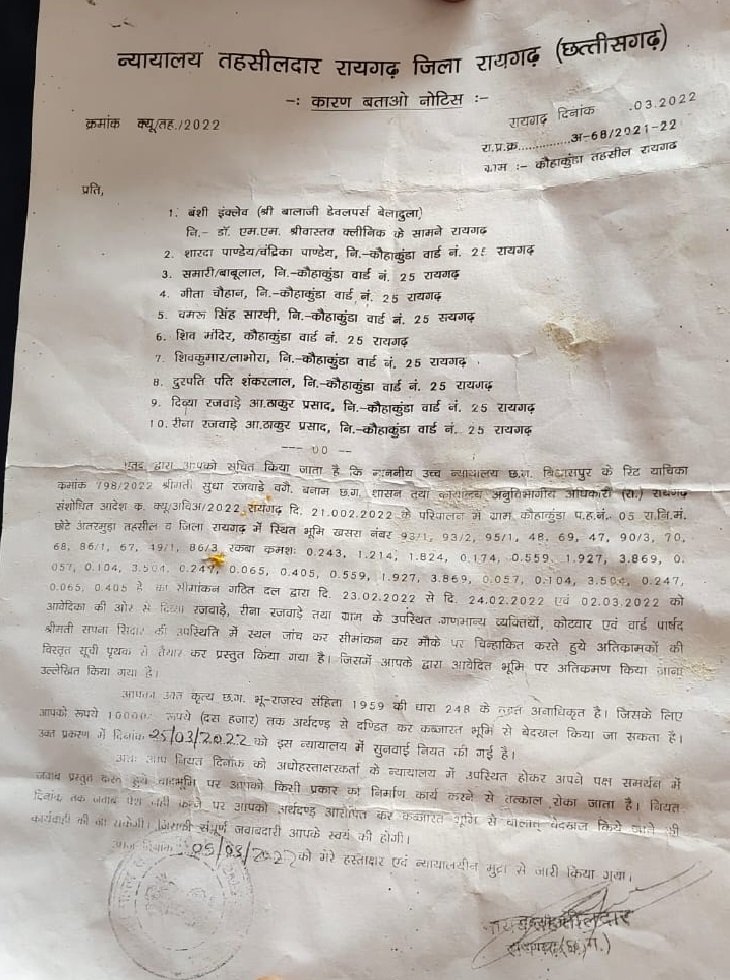 न्यायालय तहसीलदार रायगढ़ जिला रायगढ़ (छत्तीसगढ़)
-: कारण बताओ नोटिस :-
क्रमांक क्यू/तह./2022
रायगढ़ दिनांक .03.2022
रा.प्र.क्र..............अ-68/2021-22
ग्राम :- कौहाकुंडा तहसील रायगढ़
प्रति,
1. बंशी इंक्लेव (श्री बालाजी डेवलपर्स बेलादुला)
नि.- डॉ. एम.एम. श्रीवास्तव क्लीनिक के सामने रायगढ़
2. शारदा पाण्डेय/चंद्रिका पाण्डेय, नि.-कौहाकुंडा वार्ड नं. 25 रायगढ़
3. समारी/बाबूलाल, नि.-कौहाकुंडा वार्ड नं. 25 रायगढ़
4. गीता चौहान, नि.-कौहाकुंडा वार्ड नं. 25 रायगढ़
5. चमरू सिंह सारथी, नि.-कौहाकुंडा वार्ड नं. 25 रायगढ़
6. शिव मंदिर, कौहाकुंडा वार्ड नं. 25 रायगढ़
7. शिवकुमार/लाभोरा, नि.-कौहाकुंडा वार्ड नं. 25 रायगढ़
8. दुरपति पति शंकरलाल, नि.-कौहाकुंडा वार्ड नं. 25 रायगढ़
9. दिव्या रजवाड़े आ.ठाकुर प्रसाद, नि.-कौहाकुंडा वार्ड नं. 25 रायगढ़
10. रीना रजवाड़े आ.ठाकुर प्रसाद, नि.-कौहाकुंडा वार्ड नं. 25 रायगढ़
--- 00 --
एतद् द्वारा आपको सूचित किया जाता है कि माननीय उच्च न्यायालय छ.ग. बिलासपुर के रिट याचिका
क्रमांक 798/2022 श्रीमती सुधा रजवाड़े वगै. बनाम छ.ग. शासन तथा कार्यालय अनुविभागीय अधिकारी (रा.) रायगढ़
संशोधित आदेश क. क्यू/अविअ/2022 रायगढ़ दि. 21.002.2022 के परिपालन में ग्राम कौहाकुंडा प.ह.नं. 05 रा.नि.मं.
छोटे अंतरमुड़ा तहसील व जिला रायगढ़ में स्थित भूमि खसरा नंबर 93/1, 93/2, 95/1, 48, 69, 47, 90/3, 70,
68, 86/1, 67, 49/1, 86/3 रकबा क्रमशः 0.243, 1.214, 1.824, 0.174, 0.559, 1.927, 3.869, 0.
057, 0.104, 3.504, 0.247, 0.065, 0.405, 0.559, 1.927, 3.869, 0.057, 0.104, 3.504, 0.247,
0.065, 0.405 हे का सीमांकन गठित दल द्वारा दि. 23.02.2022 से दि. 24.02.2022 एवं 02.03.2022 को
आवेदिका की ओर से दिव्या रजवाड़े, रीना रजवाड़े तथा ग्राम के उपस्थित गणमान्य व्यक्तियों, कोटवार एवं वार्ड पार्षद
श्रीमती सपना सिदार की उपस्थिति में स्थल जांच कर सीमांकन कर मौके पर चिन्हांकित करते हुये अतिकामकों की
विस्तृत सूची पृथक से तैयार कर प्रस्तुत किया गया है। जिसमें आपके द्वारा आवेदित भूमि पर अतिकमण किया जाना
उल्लेखित किया गया है।
आपका उक्त कृत्य छ.ग. भू-राजस्व संहिता 1959 की धारा 248 के तहत अनाधिकृत है। जिसके लिए
आपको रूपये 10000/- रूपये (दस हजार) तक अर्थदण्ड से दण्डित कर कब्जारत भूमि से बेदखल किया जा सकता है।
उक्त प्रकरण में दिनांक 25/03/2022 को इस न्यायालय में सुनवाई नियत की गई है।
अतः आप नियत दिनांक को अधोहस्ताक्षरकर्ता के न्यायालय में उपस्थित होकर अपने पक्ष समर्थन में
जवाब प्रस्तुत करते हुये वादभूमि पर आपको किसी प्रकार का निर्माण कार्य करने से तत्काल रोका जाता है। नियत
दिनांक तक जवाब पेश नहीं करने पर आपको अर्थदण्ड आरोपित कर कब्जारत भूमि से बलात् बेदखल किये जाने की
कार्यवाही की जा सकेगी। जिसकी संपूर्ण जवाबदारी आपके स्वयं की होगी।
आज दिनांक 05/03/2022 को मेरे हस्ताक्षर एवं न्यायालयीन मुद्रा से जारी किया गया।
नायब तहसीलदार
रायगढ़ (छ.ग.)